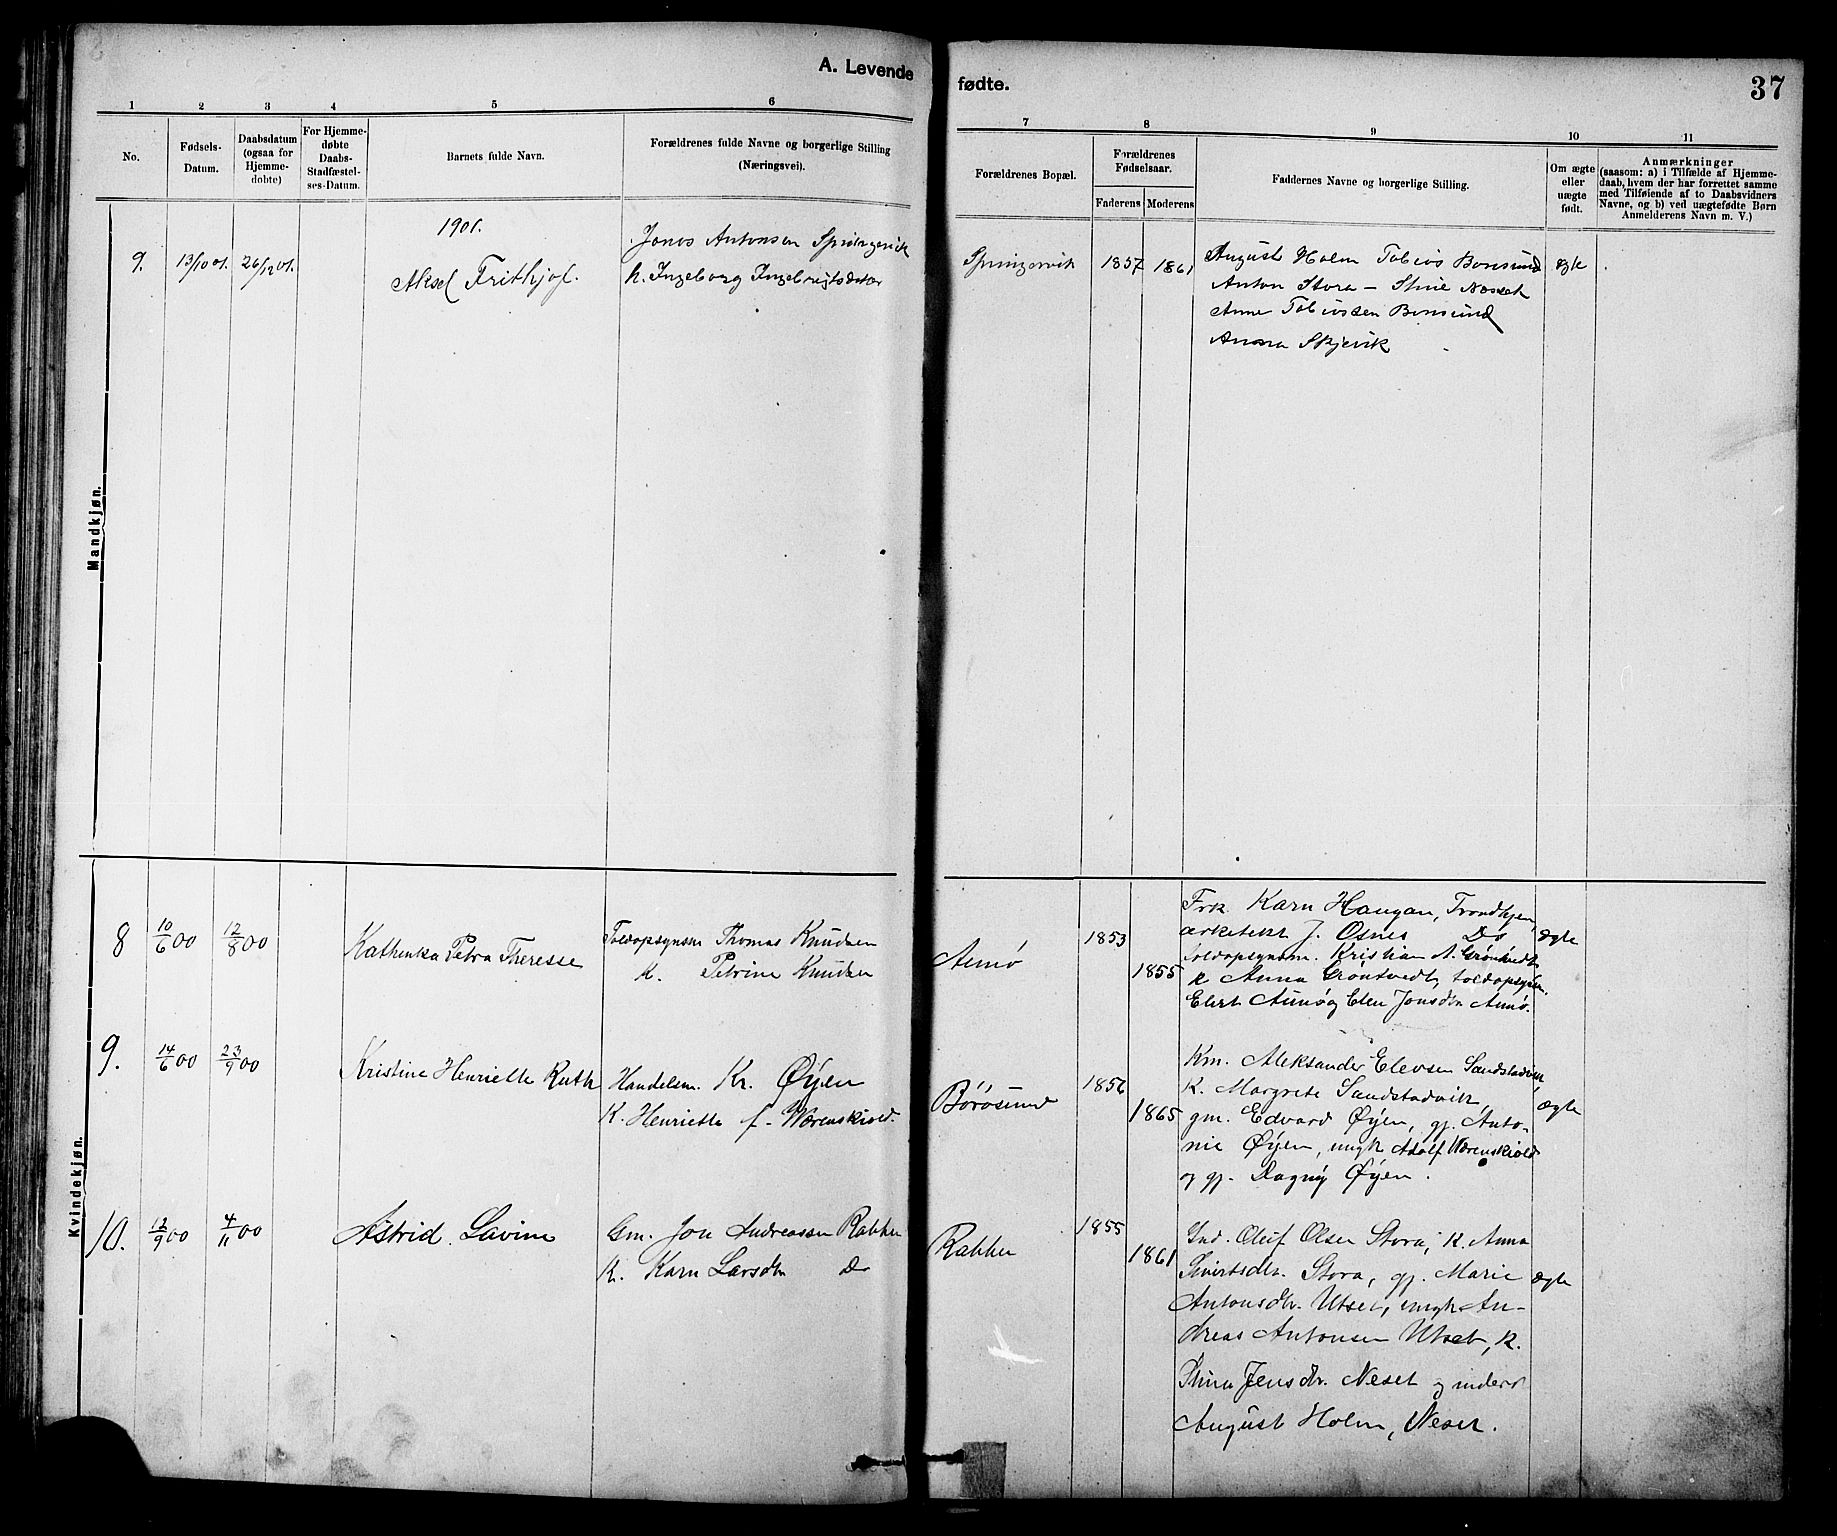 A. Levende
fødte.
37
1 2 3 4 5 6
7 8 9 10 11
No.
Fødsels-
Datum.
Daabsdatum
(ogsaa for
Hjemme-
døbte)
For Hjemme-
døbte
Daabs-
Stadfæstel-
ses-Datum.
Barnets fulde Navn.
Forældrenes fulde Navne og borgerlige Stilling
(Næringsvei).
Forældrenes Bopæl.
Forældrenes
Fødselsaar.
Faderens Moderens
Faddernes Navne og borgerlige Stilling.
Om ægte
eller
uægte
født.
Anmærkninger
(saasom: a) i Tilfælde af Hjemme-
daab, hvem der har forrettet samme
med Tilføiende af to Daabsvidners
Navne, og b) ved uægtefødte Børn
Anmelderens Navn m. V.)
Mandkjøn.
1901.
9. 13/10 01. 26/12 01.
Aksel Frithjof.
Jonas Antonsen Springervik
k. Ingeborg Ingebrigtsdatter
Springervik 1857 1861
August Holm Tobias Borisund
Anton Stora - Stine Nesset
Anne Tobiassen Borisund
Anna Skjevik
ægte
Kvindekjøn.
8 10/6 00 12/8 00
Kathenka Petra Theresse
Toldopsynsm Thomas Knudsen
K. Petrine Knudsen
Aunø 1853
1855
Frk. Karn Haugan, Trondhjem,
arkitekt J. Osnes Do
toldopsynsm. Kristian A. Grøntvedt
k Anna Grøntvedt, toldopsynsm.
Elert Aunø og Elen Jonsdtr Aunø.
ægte
9. 14/6 00 23/9 00
Kristine Henriette Ruth
Handelsm. Kr. Øyen
K. Henriette f. Wærenskiold.
Børøsund 1856
1865
Km. Aleksander Elevsen Sandstadvik
K. Margrete Sandstadvik,
gm. Edvard Øyen, gj. Anto-
nie Øyen, ungk Adolf Wærenskiold
og gj. Dagny Øyen.
ægte
10. 12/9 00 4/11 00
Astrid Lavine
Gm. Jon Andreassen Rabben
K. Karn Larsdtr Do
Rabben 1855
1861
Ind. Oluf Olsen Stora, K. Anna
Sivertsdtr. Stora, gj. Marie
Antonsdtr. Utset, ungk An-
dreas Antonsen Utset, k.
Stina Jensdtr. Neset og inders
August Holm, Neset.
ægte